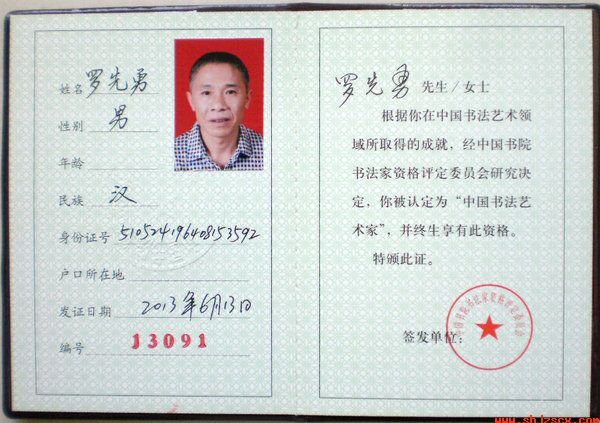 姓名 罗先勇
性别 男
年龄
民族 汉
身份证号 510524196408153592
户口所在地
发证日期 2013年6月13日
编号 13091
罗先勇 先生/女士
根据你在中国书法艺术领
域所取得的成就，经中国书院
书法家资格评定委员会研究决
定，你被认定为“中国书法艺
术家”，并终生享有此资格。
特颁此证。
签发单位：
中国书院书法家资格评定委员会
www.shjzscx.com